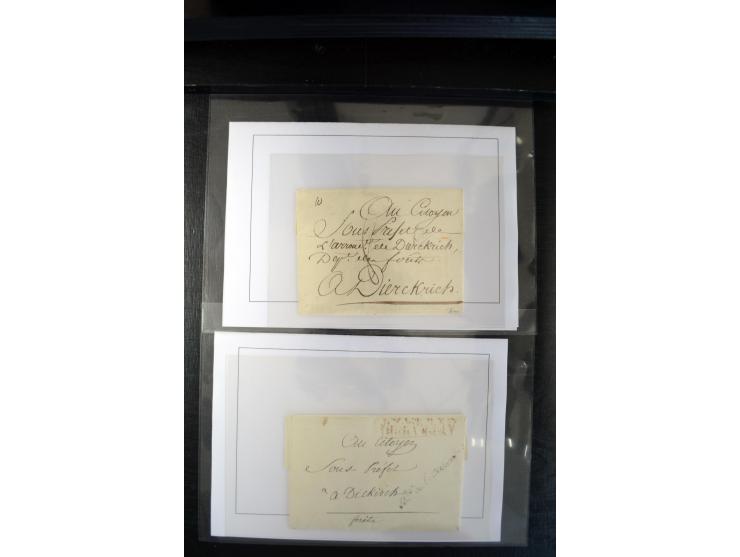 Au Citoyen
Sous Préfet de
L'arront. de Dierckrich,
Dept. des forêts
A Dierckrich.
Au Citoyen
Sous Préfet
a Dickirch
forêts